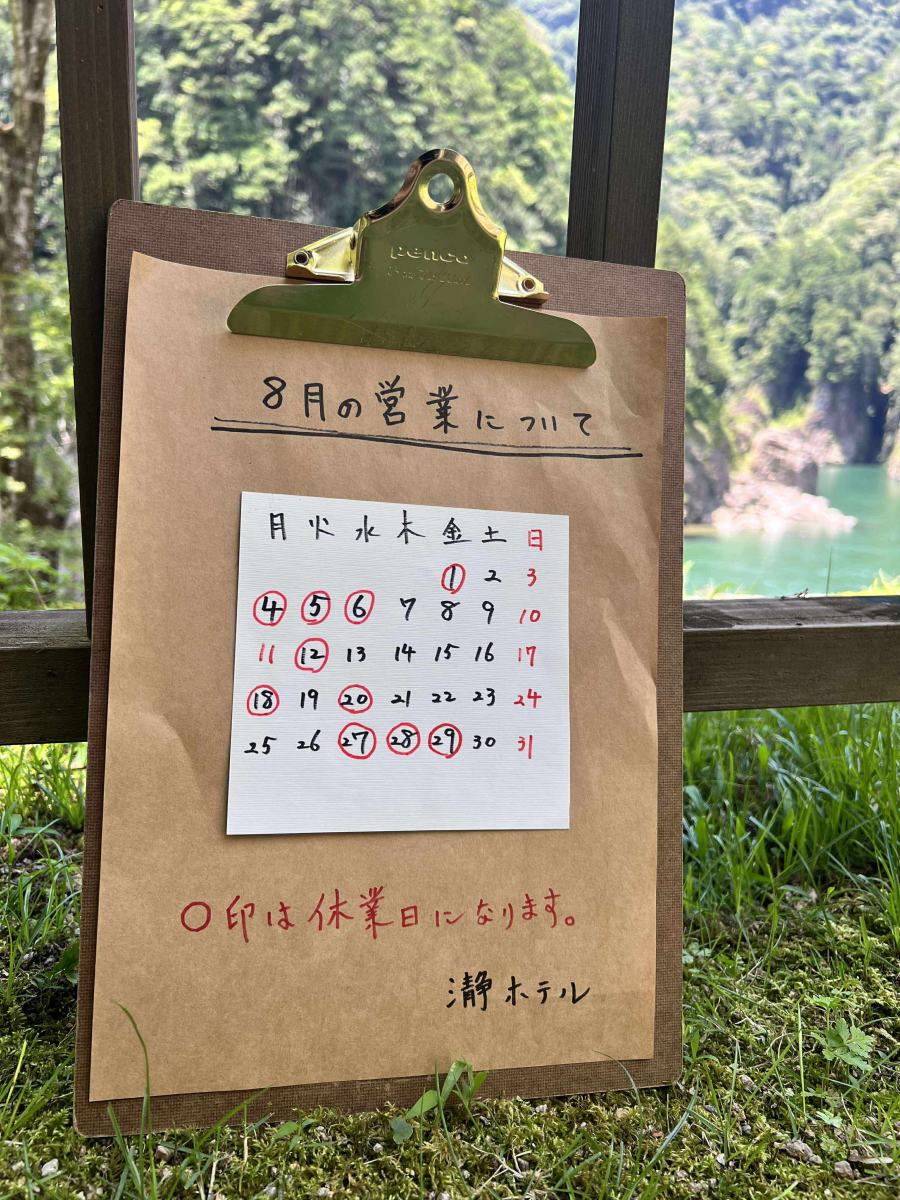 penco
8月の営業について
月 火 水 木 金 土 日
1 2 3
4 5 6 7 8 9 10
11 12 13 14 15 16 17
18 19 20 21 22 23 24
25 26 27 28 29 30 31
〇印は休業日になります。
瀞ホテル